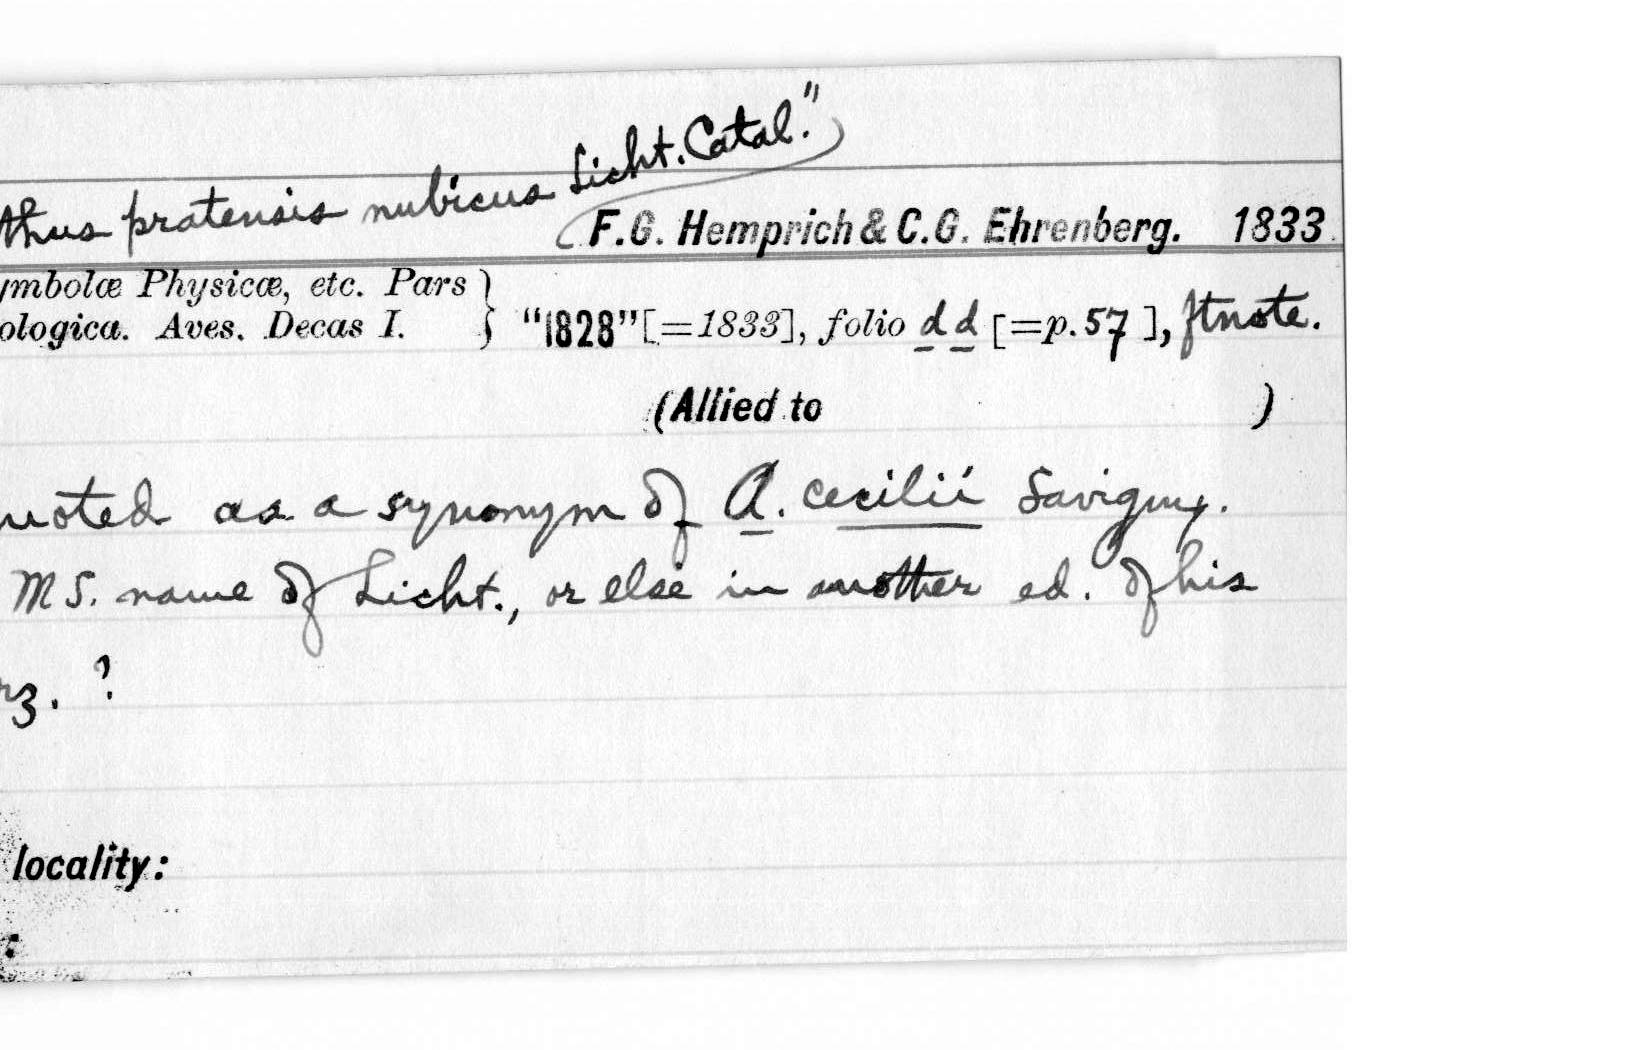 thus pratensis nubicus Licht. Catal."
F.G. Hemprich & C.G. Ehrenberg. 1833
ymbolæ Physicæ, etc. Pars
ologica. Aves. Decas I. } "1828" [=1833], folio d d [=p. 57], ftnote.
(Allied to )
uoted as a synonym of A. cecilii Savigny.
MS. name of Licht., or else in another ed. of his
rz. ?
locality:
: